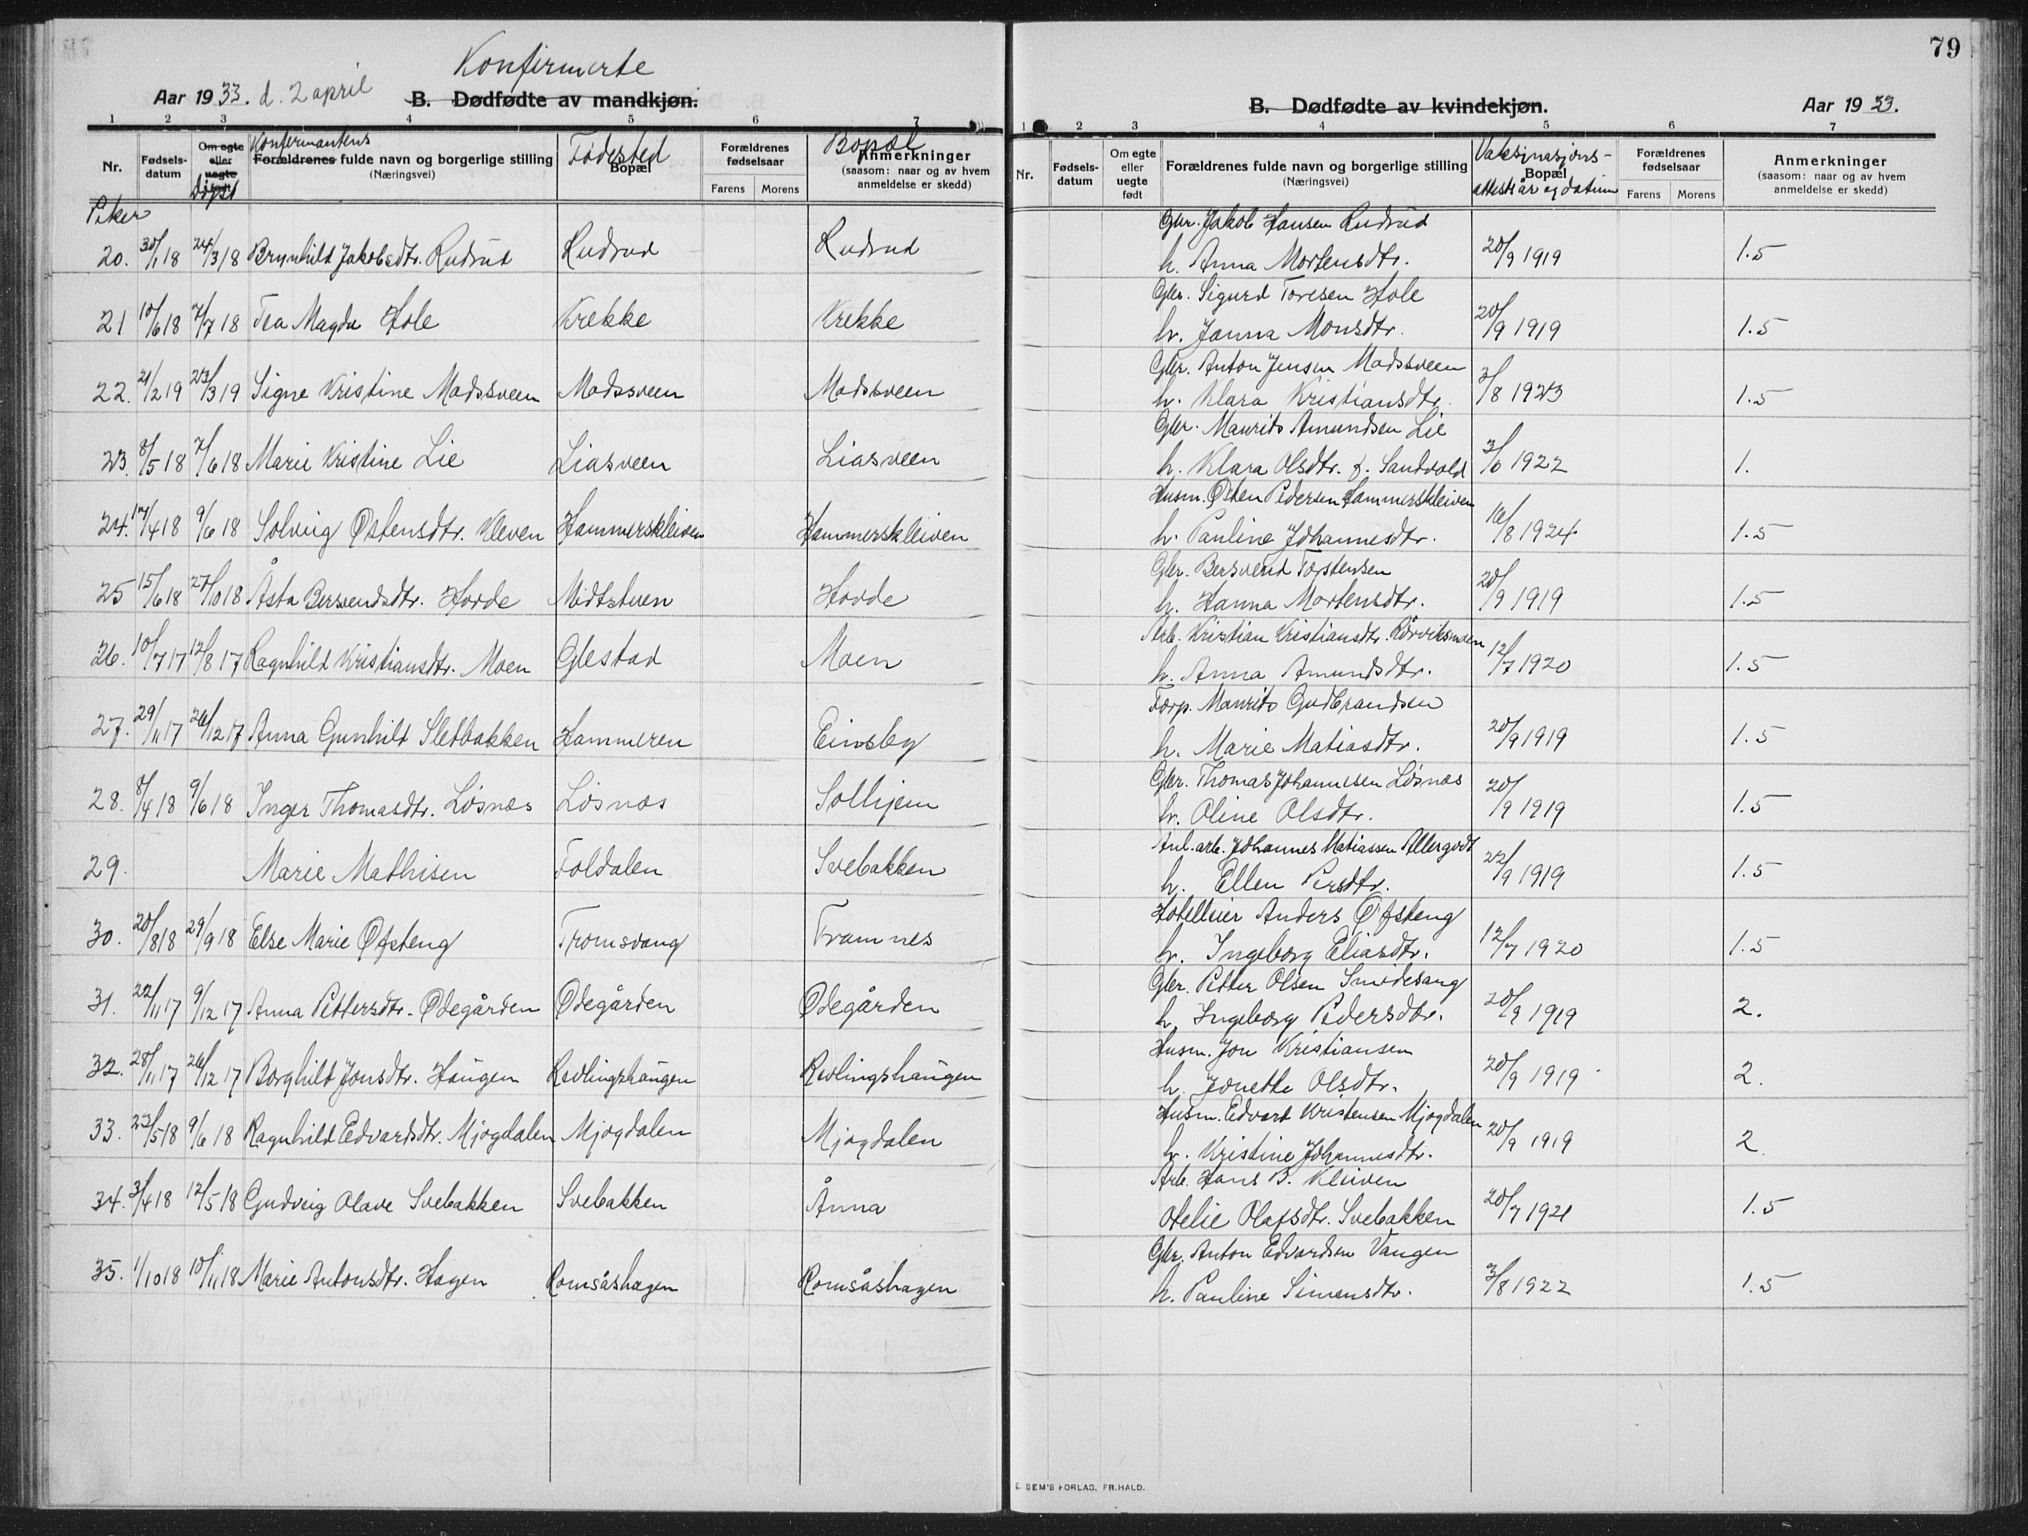 79
Konfirmerte
Aar 1933. d. 2 april B. Dødfødte av mandkjøn.
B. Dødfødte av kvindekjøn. Aar 1933.
1 2 3 4 5 6 7
1 2 3 4 5 6 7
Nr. Fødsels-datum Om egte eller uegte født Døpt Konfirmantens Forældrenes fulde navn og borgerlige stilling (Næringsvei) Fødested Bopæl Forældrenes fødselsaar Farens Morens Bopæl Anmerkninger (saasom: naar og av hvem anmeldelse er skedd)
Nr. Fødsels-datum Om egte eller uegte født Forældrenes fulde navn og borgerlige stilling (Næringsvei) Vaksinasjons- Bopæl attest år og datum Forældrenes fødselsaar Farens Morens Anmerkninger (saasom: naar og av hvem anmeldelse er skedd)
Piker
20. 30/1 18 24/3 18 Brynhild Jakobsdtr. Rudrud Rudrud Rudrud
Gbr. Jakob Hansen Rudrud
h. Anna Mortensdtr. 20/9 1919 1.5
21 10/6 18 7/7 18 Tea Magda Hole Krekke Krekke
Gbr. Sigurd Toresen Hole
h. Janna Monsdtr. 20/9 1919 1.5
22. 21/2 19 23/3 19 Signe Kristine Madssveen Madssveen Madssveen
Gbr. Anton Jensen Madssveen
h. Klara Kristiansdtr. 3/8 1923 1.5
23. 8/5 18 7/6 18 Marie Kristine Lie Liasveen Liasveen
Gbr. Maurits Amundsen Lie
h. Klara Olsdtr. f. Sandvold 3/6 1922 1.
24. 17/4 18 9/6 18 Solveig Østensdtr. Kleven Hammerskleiven Hammerskleiven
Husm. Østen Pedersen Hammerskleiven
h. Pauline Johannesdtr. 16/8 1924 1.5
25 15/6 18 27/10 18 Åsta Bersvendsdtr. Hovde Midtstuen Hovde
Gbr. Bersvend Torstensen
h. Hanna Mortensdtr. 20/9 1919 1.5
26. 10/7 17 12/8 17 Ragnhild Kristiansdtr. Moen Glestad Moen
Arb. Kristian Kristiansdtr. Rørviksmoen
h. Anna Amundsdtr. 12/7 1920 1.5
27. 29/11 17 26/12 17 Anna Gunhild Sletbakken Hammeren Einsby
Forp. Maurits Gudbrandsen
h. Marie Matiasdtr. 20/9 1919 1.5
28. 8/4 18 9/6 18 Inger Thomasdtr. Løsnæs Løsnæs Solhjem
Gbr. Thomas Johannesen Løsnæs
h. Oline Olsdtr. 20/9 1919 1.5
29. Marie Mathisen Foldalen Svebakken
Anl.arb. Johannes Matiassen Allergodt
h. Ellen Persdtr. 22/9 1919 1.5
30. 20/8 18 29/9 18 Else Marie Øfsteng Tromsvang Framnes
Hotelleier Anders Øfsteng
h. Ingeborg Eliasdtr. 12/7 1920 1.5
31. 22/11 17 9/12 17 Anna Pettersdtr. Ødegården Ødegården Ødegården
Gbr. Petter Olsen Smidesang
h. Ingeborg Pedersdtr. 20/9 1919 2.
32. 28/11 17 26/12 17 Borghild Jonsdtr. Haugen Revlingshaugen Revlingshaugen
Husm. Jon Kristiansen
h. Jonette Olsdtr. 20/9 1919 2.
33. 23/5 18 9/6 18 Ragnhild Edvardsdtr. Mjogdalen Mjogdalen Mjogdalen
Husm. Edvard Kristensen Mjogdalen
h. Kristine Johannesdtr. 20/9 1919 2.
34. 3/4 18 12/5 18 Gudveig Olave Svebakken Svebakken Ånna
Arb. Hans B. Kleiven
Otelie Olafsdtr. Svebakken 20/7 1921 1.5
35. 1/10 18 10/11 18 Marie Antonsdtr. Hagen Romsåshagen Romsåshagen
Gbr. Anton Edvardsen Vangen
h. Pauline Simensdtr. 3/8 1922 1.5
E. SEM'S FORLAG, FR.HALD.